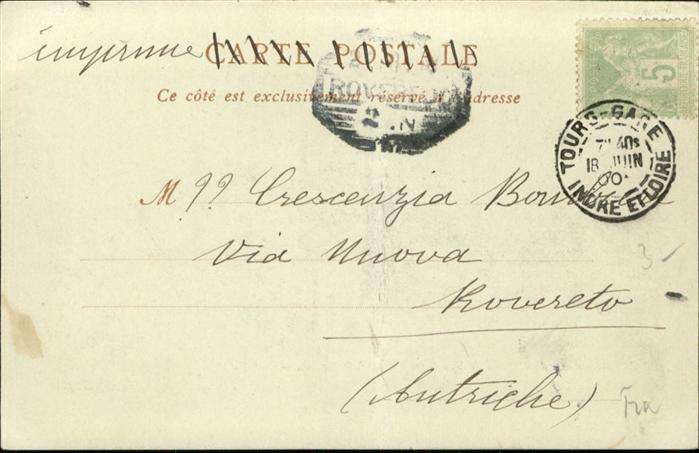 imprimé CARTE POSTALE
Ce côté est exclusivement réservé à l'adresse
5
ROVERETO
TOURS-GARE
18 JUIN
INDRE ET LOIRE
Mlle Crescenzia
Via Nuova
Rovereto
(Autriche)
3